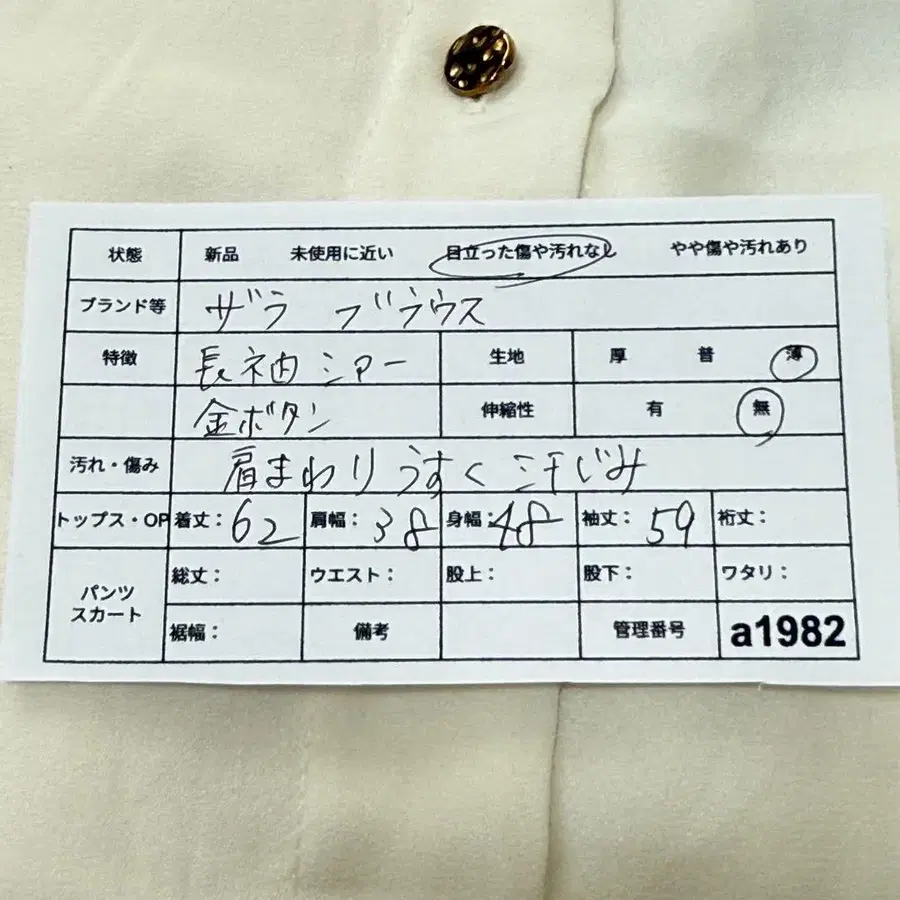 状態 新品 未使用に近い 目立った傷や汚れなし やや傷や汚れあり
ブランド等 ザラ ブラウス
特徴 長袖 シアー 生地 厚 普 薄
金ボタン 伸縮性 有 無
汚れ・傷み 肩まわりうすく汗じみ
トップス・OP 着丈: 62 肩幅: 38 身幅: 48 袖丈: 59 裄丈:
パンツ スカート 総丈: ウエスト: 股上: 股下: ワタリ:
裾幅: 備考 管理番号 a1982